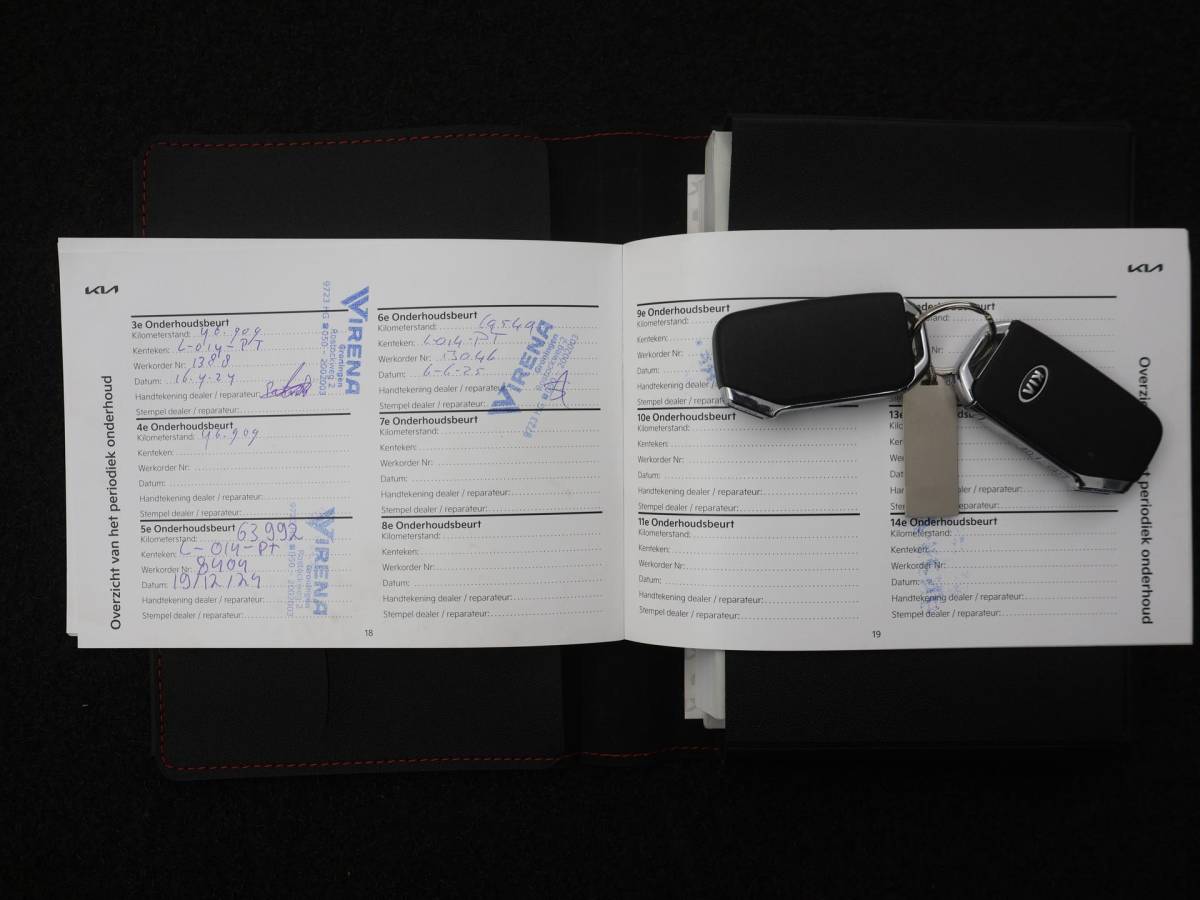 KIA
Overzicht van het periodiek onderhoud
3e Onderhoudsbeurt
Kilometerstand: 46.909
Kenteken: L-014-PT
Werkorder Nr: 1388
Datum: 16-4-24
Handtekening dealer / reparateur:
Stempel dealer / reparateur:
VIRENA
Groningen
Rostockweg 2
9723 HG 050-2002003
4e Onderhoudsbeurt
Kilometerstand: 46.909
Kenteken:
Werkorder Nr:
Datum:
Handtekening dealer / reparateur:
Stempel dealer / reparateur:
5e Onderhoudsbeurt
Kilometerstand: 63992
Kenteken: L-014-PT
Werkorder Nr: 8404
Datum: 19/12/24
Handtekening dealer / reparateur:
Stempel dealer / reparateur:
VIRENA
Groningen
Rostockweg 2
6e Onderhoudsbeurt
Kilometerstand:
Kenteken: L-014-PT
Werkorder Nr: 13046
Datum: 6-6-25
Handtekening dealer / reparateur:
Stempel dealer / reparateur:
VIRENA
Groningen
Rostockweg 2
7e Onderhoudsbeurt
Kilometerstand:
Kenteken:
Werkorder Nr:
Datum:
Handtekening dealer / reparateur:
Stempel dealer / reparateur:
8e Onderhoudsbeurt
Kilometerstand:
Kenteken:
Werkorder Nr:
Datum:
Handtekening dealer / reparateur:
Stempel dealer / reparateur:
18
KIA
9e Onderhoudsbeurt
Kilometerstand:
Kenteken:
Werkorder Nr:
Datum:
Handtekening dealer
Stempel dealer / reparateur:
10e Onderhoudsbeurt
Kilometerstand:
Kenteken:
Werkorder Nr:
Datum:
Handtekening dealer / reparateur:
Stempel dealer / reparateur:
11e Onderhoudsbeurt
Kilometerstand:
Kenteken:
Werkorder Nr:
Datum:
Handtekening dealer / reparateur:
Stempel dealer / reparateur:
13e
14e Onderhoudsbeurt
Kilometerstand:
Kenteken:
Werkorder Nr:
Datum:
Handtekening dealer / reparateur:
Stempel dealer / reparateur:
KIA
periodiek onderhoud
19